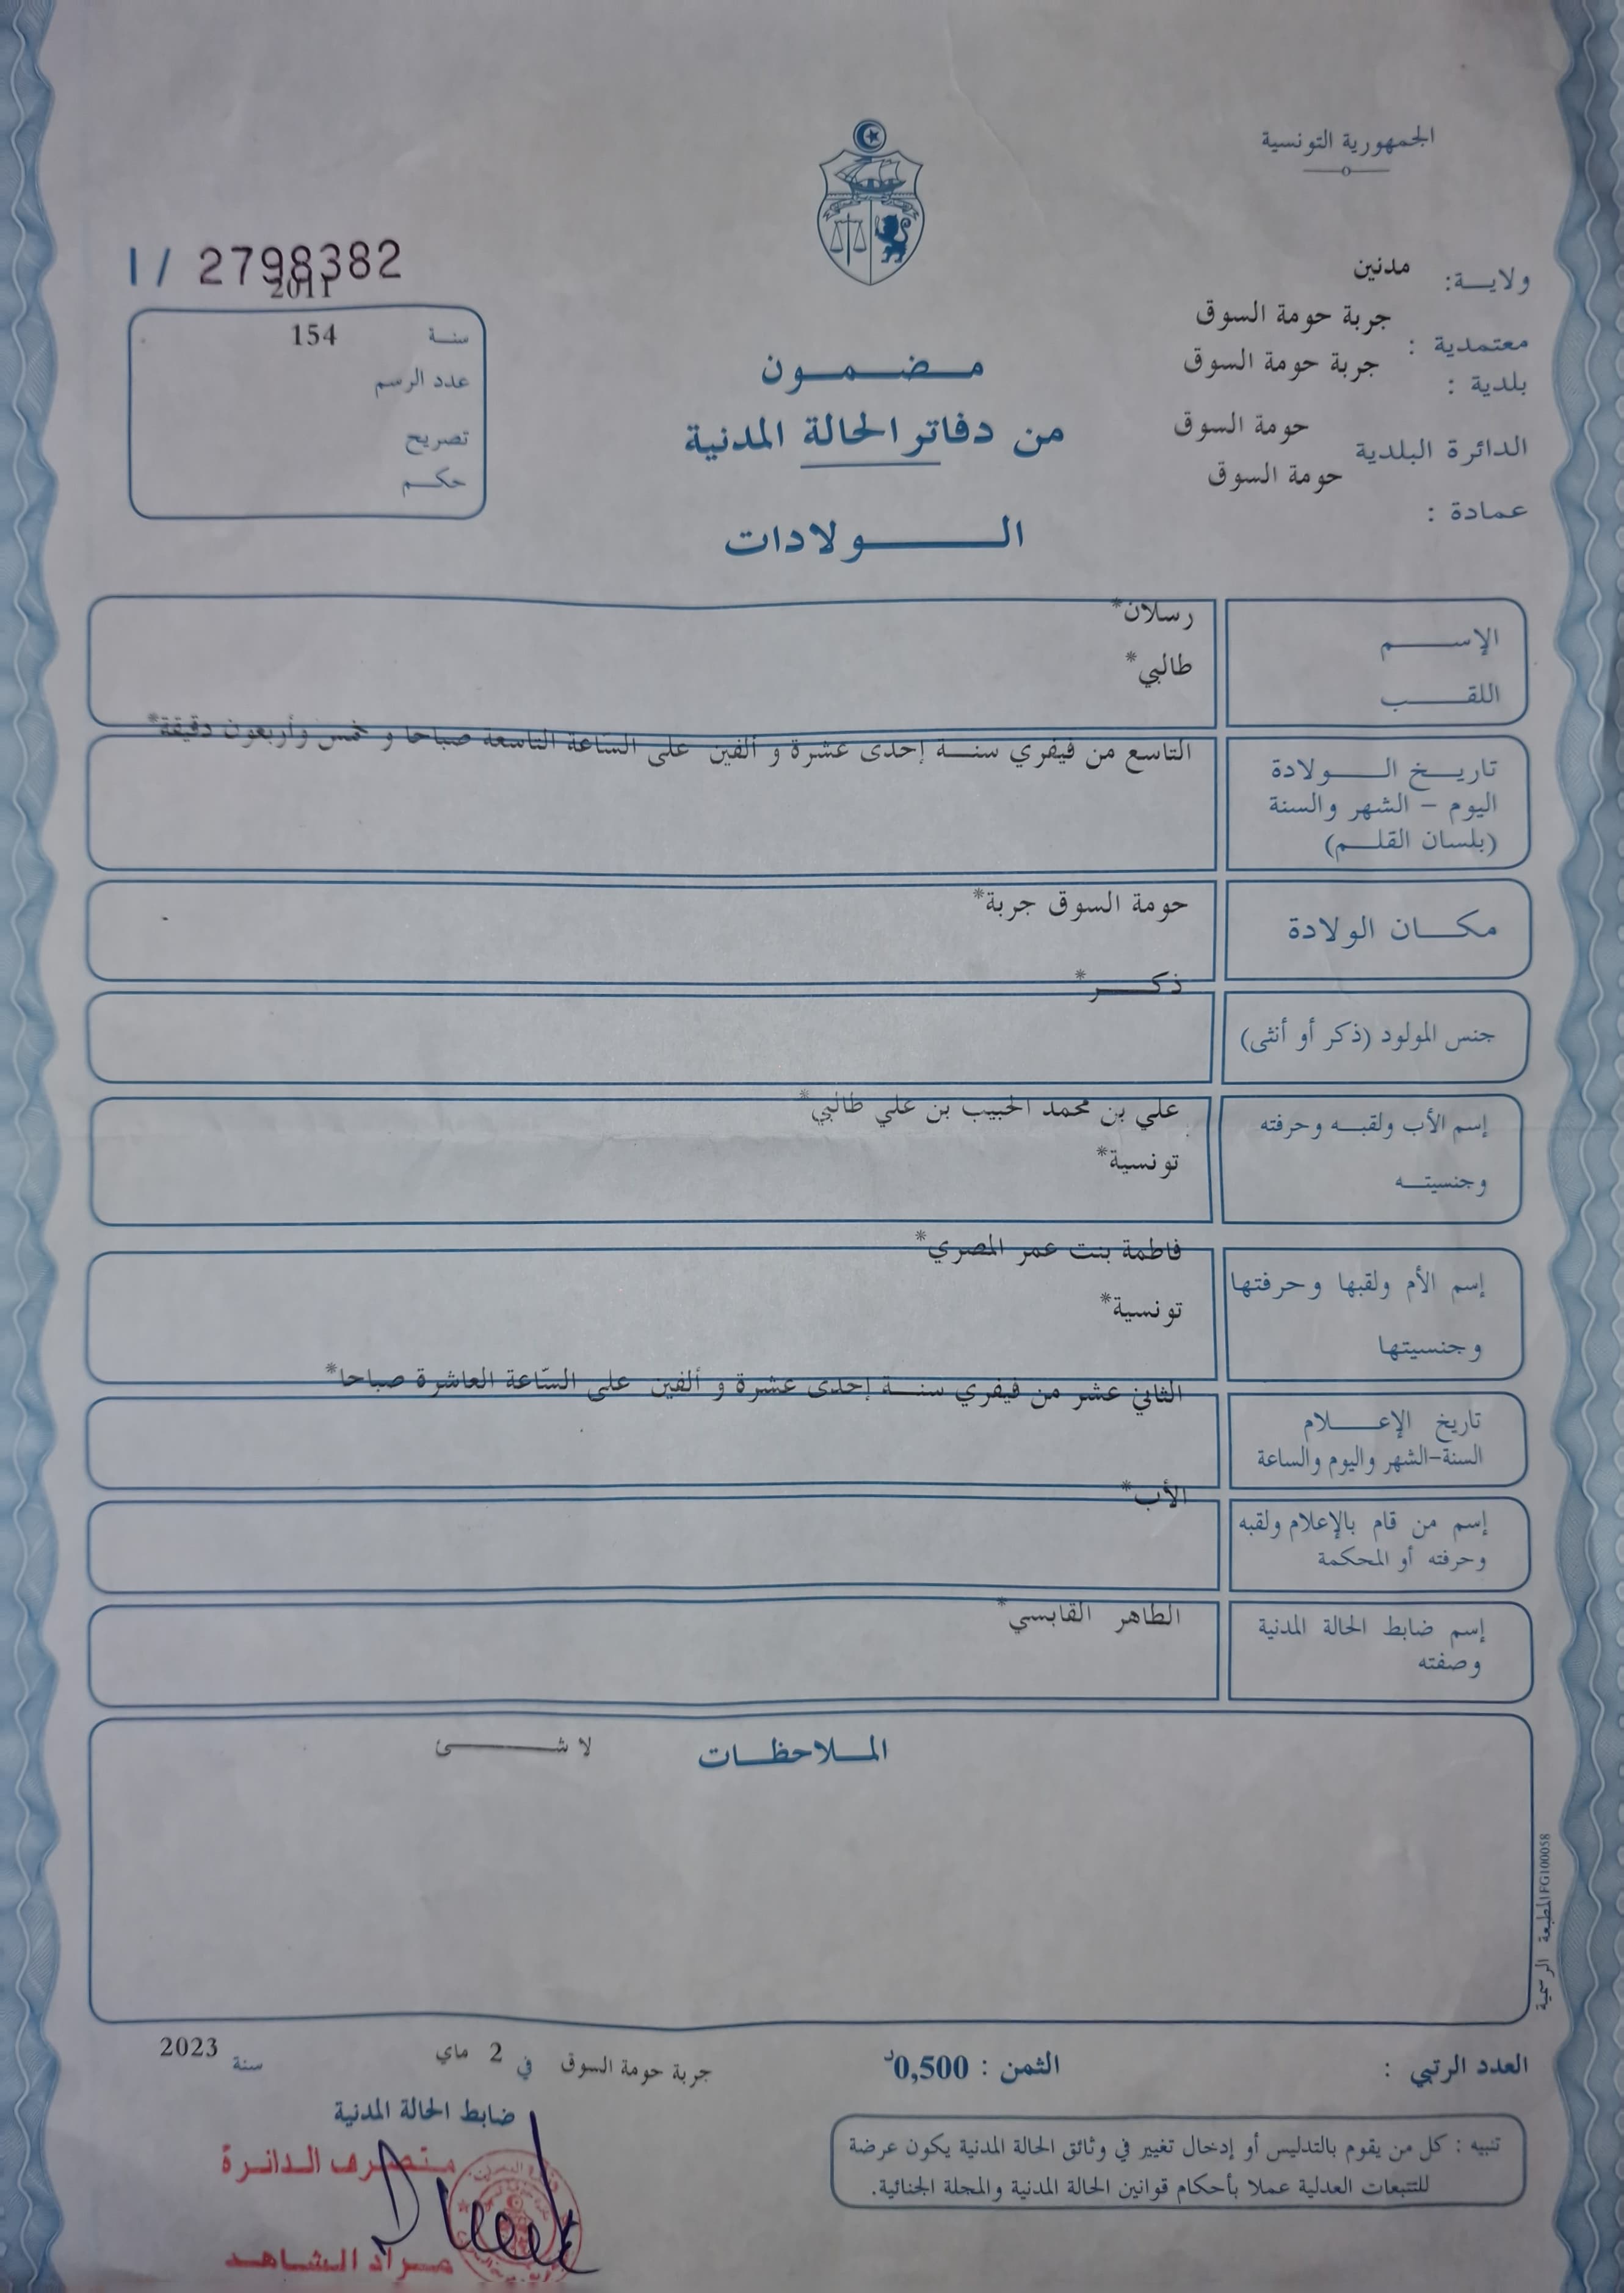 الجمهورية التونسية
I / 2798382
2011
سنة 154
عدد الرسم
تصريح
حكم
ولاية: مدنين
معتمدية : جربة حومة السوق
بلدية : جربة حومة السوق
الدائرة البلدية حومة السوق
عمادة : حومة السوق
مضمون
من دفاتر الحالة المدنية
الولادات
الإسم رسلان*
اللقب طالبي*
تاريخ الولادة
اليوم - الشهر والسنة
(بلسان القلم)
التاسع من فيفري سنة إحدى عشرة و ألفين على السّاعة التاسعة صباحا و خمس وأربعون دقيقة*
مكان الولادة حومة السوق جربة*
جنس المولود (ذكر أو أنثى) ذكر*
إسم الأب ولقبه وحرفته علي بن محمد الحبيب بن علي طالبي*
وجنسيته تونسية*
إسم الأم ولقبها وحرفتها فاطمة بنت عمر المصري*
وجنسيتها تونسية*
الثاني عشر من فيفري سنة إحدى عشرة و ألفين على السّاعة العاشرة صباحا*
تاريخ الإعلام
السنة-الشهر واليوم والساعة
الأب*
إسم من قام بالإعلام ولقبه
وحرفته أو المحكمة
الطاهر القابسي*
إسم ضابط الحالة المدنية
وصفته
الملاحظات لا شئ
المطبعة الرسمية IFG100058
العدد الرتبي :
الثمن : 0,500د
جربة حومة السوق في 2 ماي سنة 2023
ضابط الحالة المدنية
متصرف الدائرة
مراد الشاهد
تنبيه : كل من يقوم بالتدليس أو إدخال تغيير في وثائق الحالة المدنية يكون عرضة
للتتبعات العدلية عملا بأحكام قوانين الحالة المدنية والمجلة الجنائية.